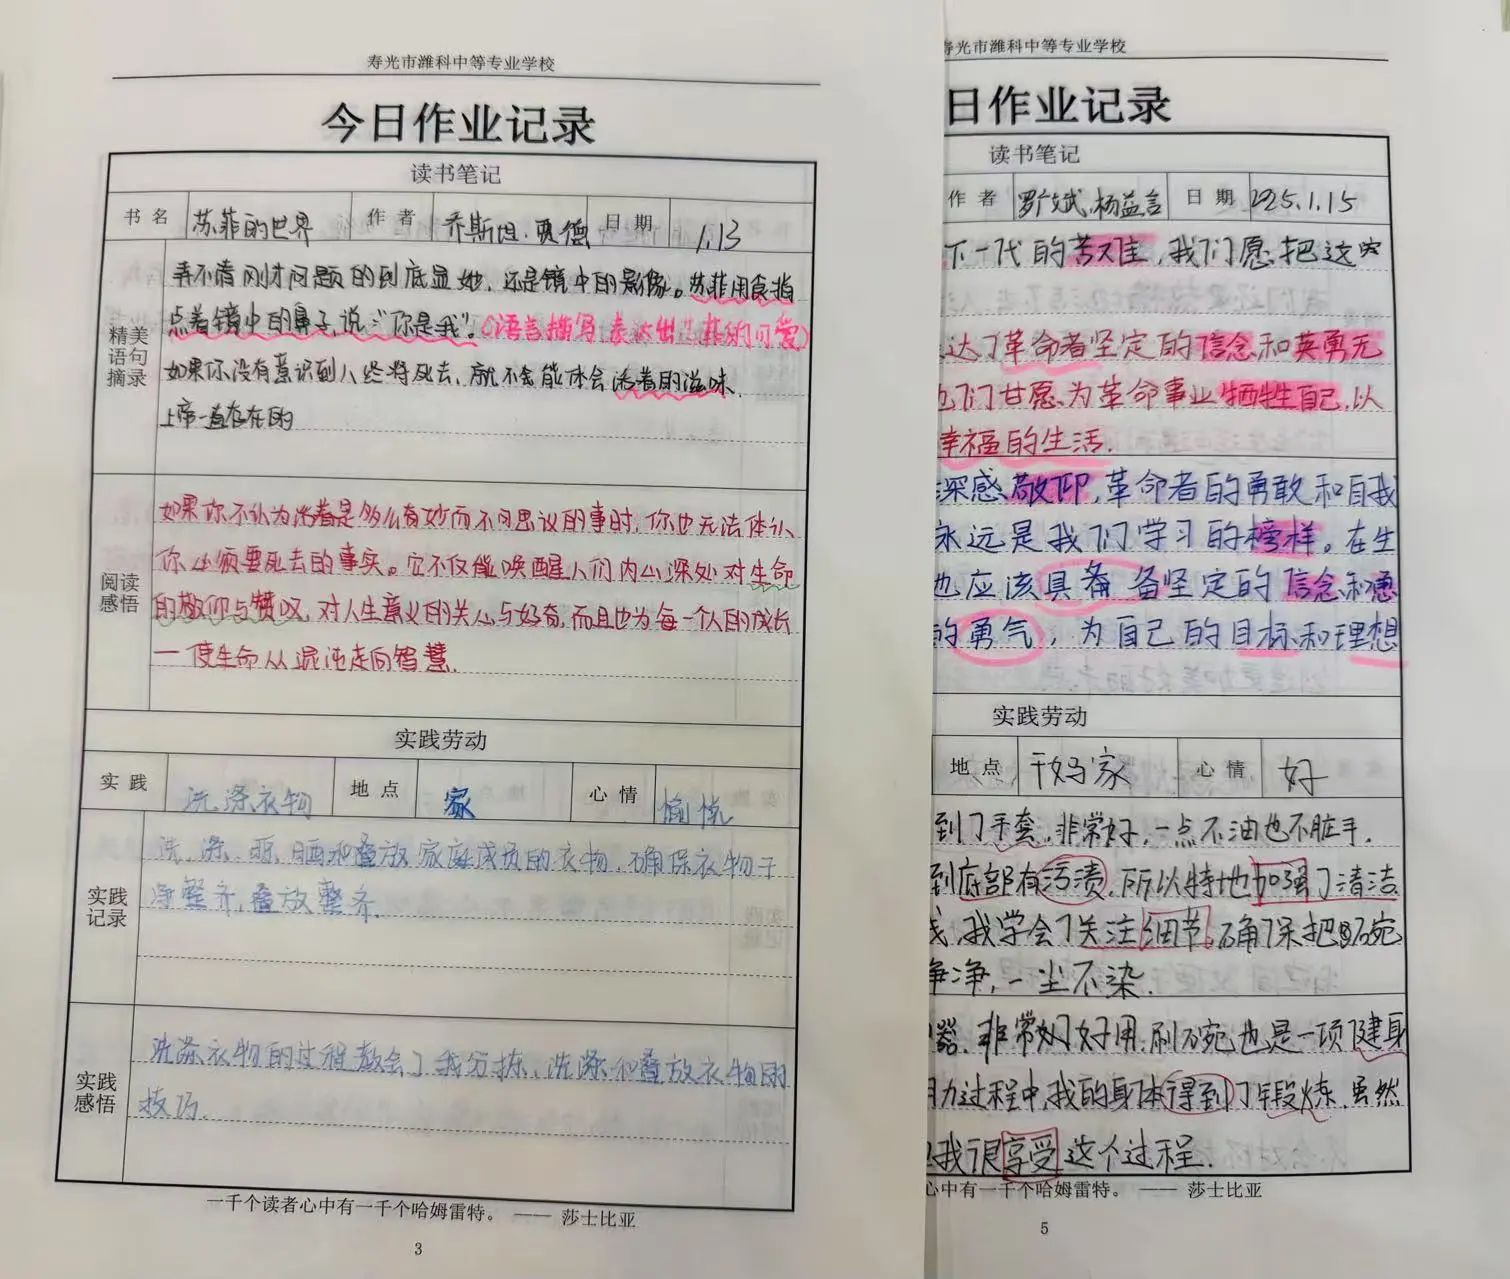 寿光市潍科中等专业学校
今日作业记录
读书笔记
书名 苏菲的世界 作者 乔斯坦·贾德 日期 1.13
精美语句摘录
弄不清刚才问题的到底是她,还是镜中的影像。苏菲用食指
点着镜中的鼻子说:"你是我"。(语言描写,表达出苏菲的可爱)
如果你没有意识到人终将死去,就不会能体会活着的滋味.
上帝一直存在的
阅读感悟
如果你不认为活着是多么奇妙而不可思议的事时,你也无法体认
你必须要死去的事实。它不仅能唤醒人们内心深处对生命
的敬仰与赞叹,对人生意义的关心与好奇,而且也为每一个人的成长
一使生命从混沌走向智慧.
实践劳动
实践 洗涤衣物 地点 家 心情 愉悦
实践记录
洗、涤、晾、晒和叠放家庭成员的衣物,确保衣物干
净整齐,叠放整齐.
实践感悟
洗涤衣物的过程教会了我分拣、洗涤和叠放衣物的
技巧.
一千个读者心中有一千个哈姆雷特。 —— 莎士比亚
3
寿光市潍科中等专业学校
日作业记录
读书笔记
作者 罗广斌,杨益言 日期 2025.1.15
下一代的苦难,我们愿把这
达了革命者坚定的信念和英勇无
们甘愿为革命事业牺牲自己,以
幸福的生活.
深感敬仰,革命者的勇敢和自我
永远是我们学习的榜样。在生
也应该具备 备坚定的信念和
的勇气,为自己的目标和理想
实践劳动
地点 干妈家 心情 好
到了手套,非常好,一点不油也不脏手.
到底部有污渍,所以特地加强了清洁
,我学会了关注细节,确保把碗
净净,一尘不染.
器,非常好用,刷碗也是一项健身
力过程中,我的身体得到了锻炼,虽然
我很享受这个过程.
心中有一千个哈姆雷特。 —— 莎士比亚
5